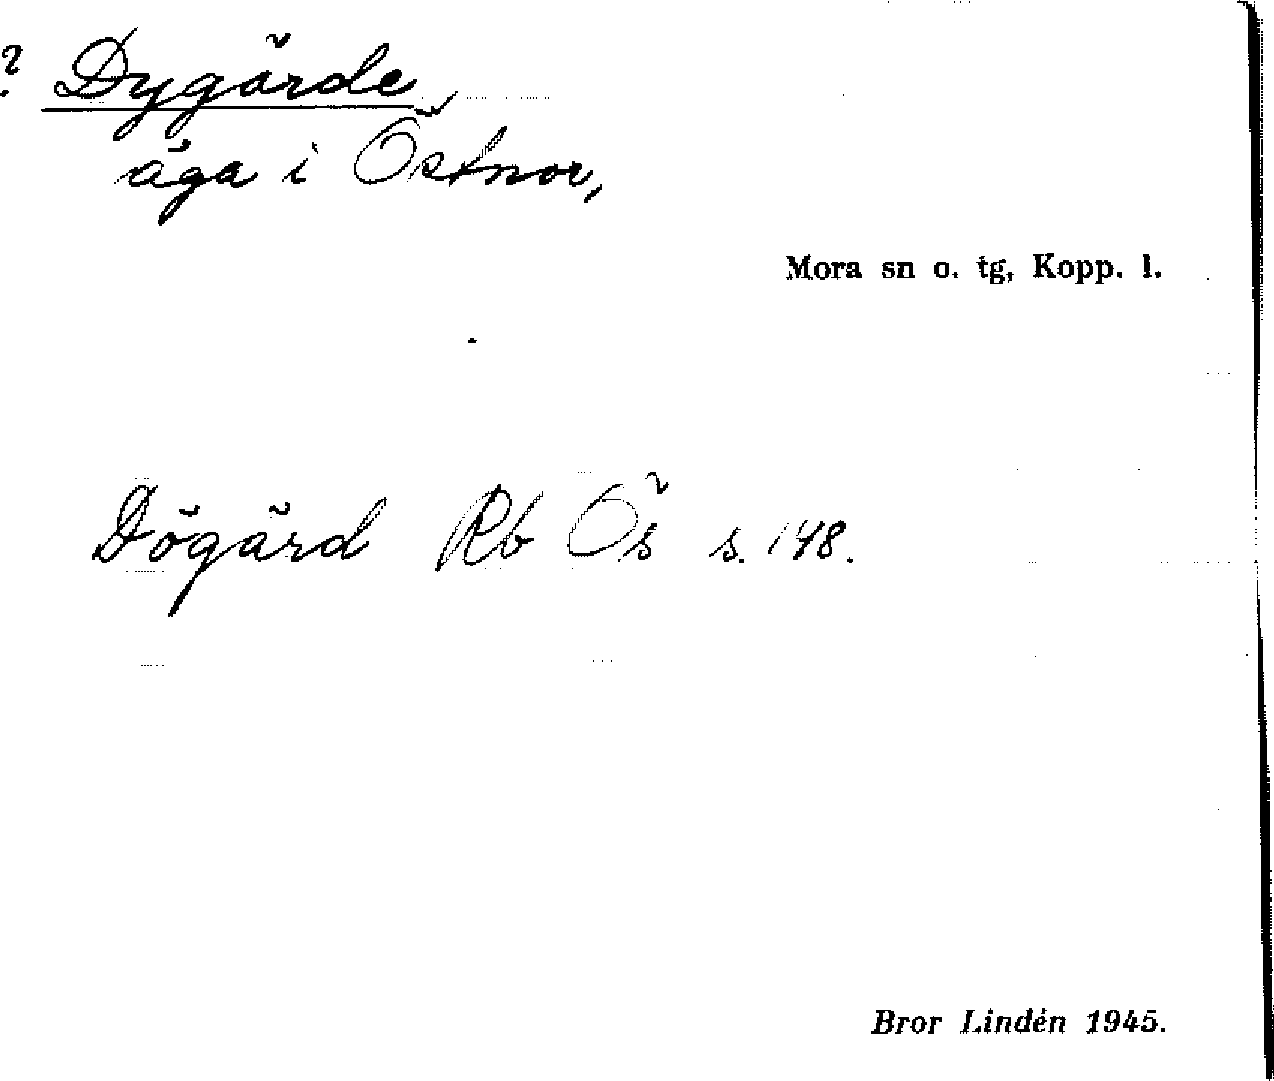 ? Dygärde
äga i Östnor,
Mora sn o. tg, Kopp. l.
Dögärd Rb Ös s. 148.
Bror Lindén 1945.